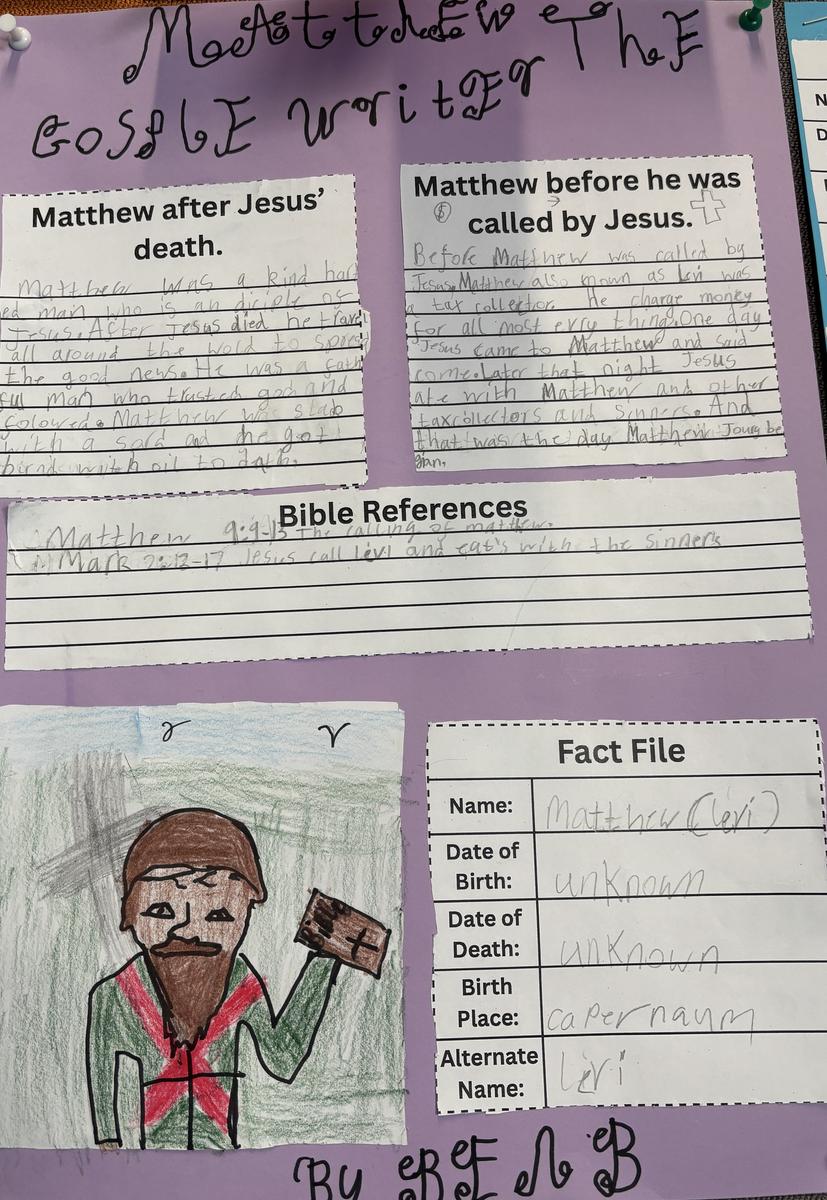 Matthew The
Gosple writer
Matthew after Jesus'
death.
Matthew was a kind hart
ed man who is an diciple of
Jesus. After Jesus died he trave
all around the wold to spred
the good news. He was a faith
ful man who trusted god and
Matthew was stab
with a sord and he got
birnd with oil to dath.
Matthew before he was
called by Jesus.
$
Before Matthew was called by
Jesus. Matthew also known as Levi was
a tax collector. He charge money
for all most evry thing. One day
Jesus came to Matthew and said
come. Later that night Jesus
ate with Matthew and other
taxcollectors and sinners. And
that was the day Matthew Joury be
gian.
Bible References
Matthew 9:9-13 The calling of matthew.
Mark 2:13-17 Jesus call levi and eat's with the sinners
Bible
Fact File
Name: Matthew (levi)
Date of
Birth: unknown
Date of
Death: unknown
Birth
Place: capernaum
Alternate
Name: Levi
N
D
By BEN B